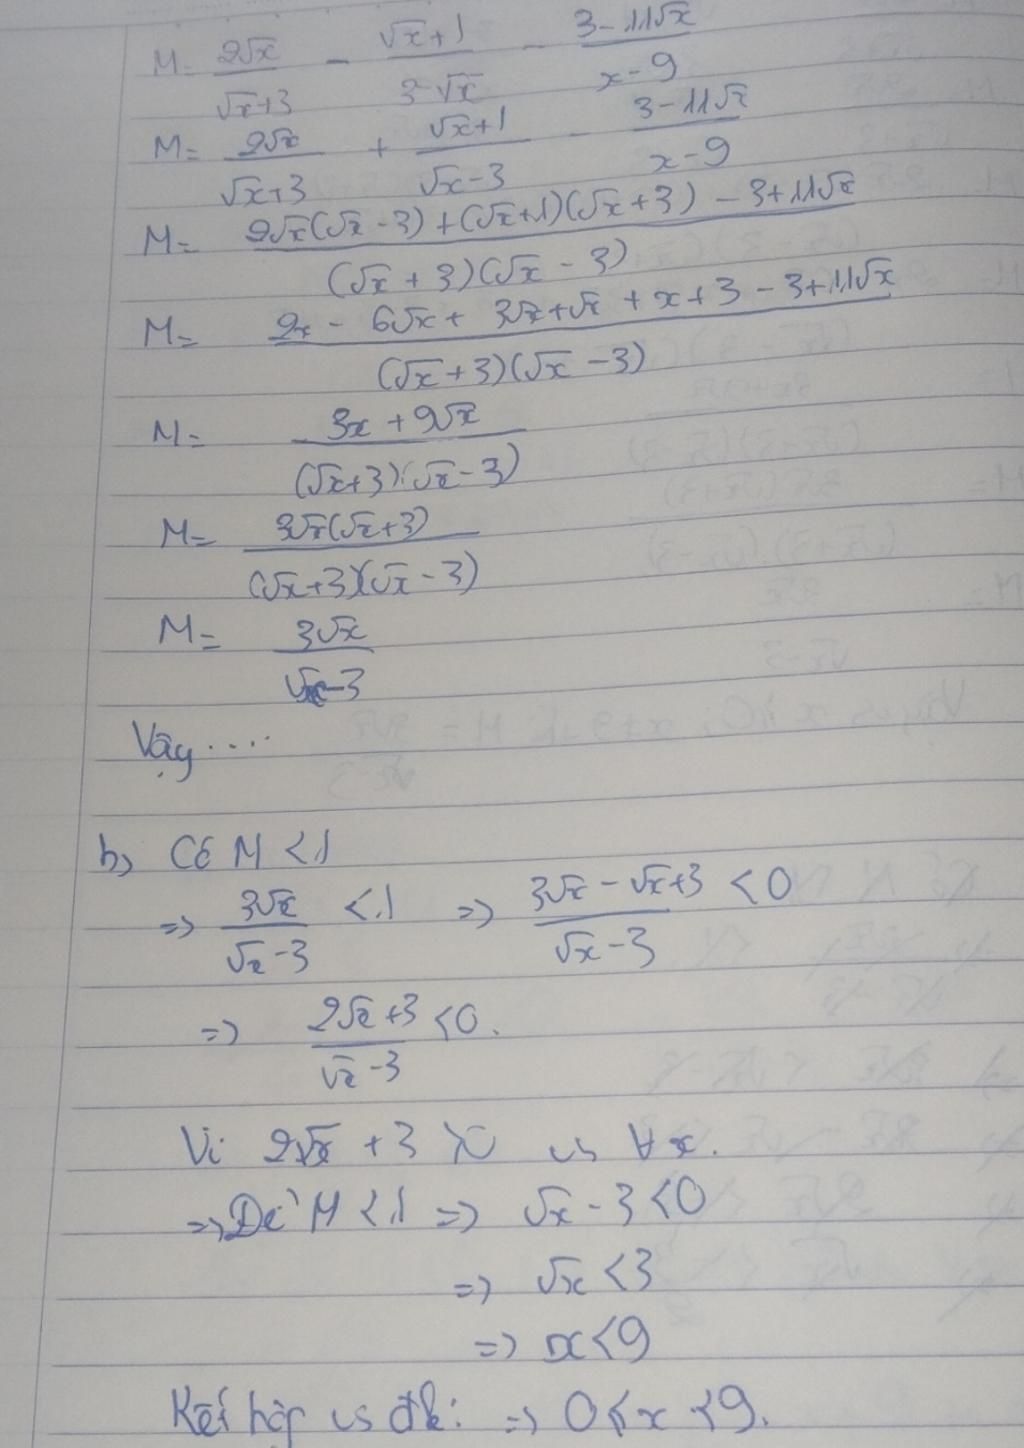 M = 2√x/(√x+3) - (√x+1)/(3-√x) - (3-11√x)/(x-9)
M = 2√x/(√x+3) + (√x+1)/(√x-3) - (3-11√x)/(x-9)
M = (2√x(√x-3)+(√x+1)(√x+3) - 3+11√x)/((√x+3)(√x-3))
M = (2x - 6√x + 3√x+√x + x+3 - 3+11√x)/((√x+3)(√x-3))
M = (3x + 9√x)/((√x+3)(√x-3))
M = 3√x(√x+3)/((√x+3)(√x-3))
M = 3√x/(√x-3)
Vậy ....
b, Có M < 1
=> 3√x/(√x-3) < 1 => (3√x - √x+3)/(√x-3) < 0
=> (2√x+3)/(√x-3) < 0.
Vì 2√x + 3 > 0 vs ∀x.
=> Để M < 1 => √x - 3 < 0
=> √x < 3
=> x < 9
Kết hợp vs đk: => 0 ≤ x < 9.